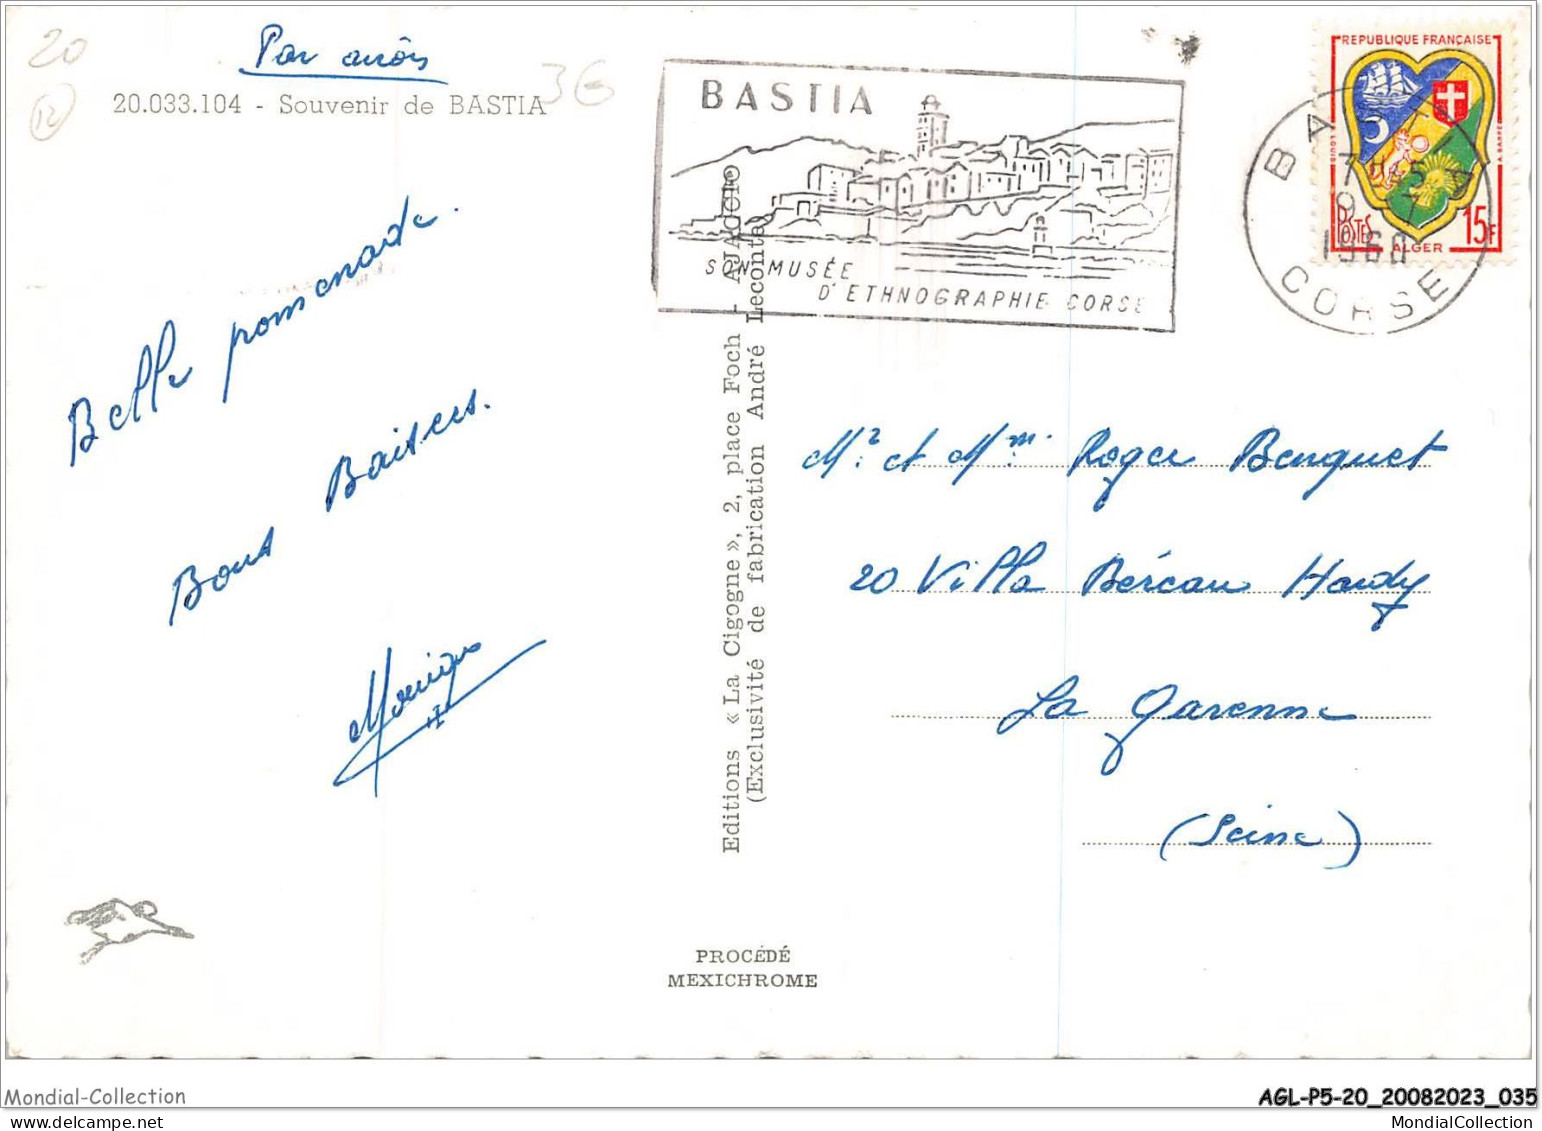 20
Par avion
12
20.033.104 - Souvenir de BASTIA
3€
BASTIA
SON MUSÉE
D'ETHNOGRAPHIE CORSE
REPUBLIQUE FRANÇAISE
POSTES
ALGER
15F
BASTIA
7H45
9-7
1960
CORSE
Belle promenade.
Bons Baisers.
Monique
Editions « La Cigogne », 2, place Foch - AJAccio
(Exclusivité de fabrication André Leconte)
Mr. et Mme. Roger Benquet
20 Villa Béréau Hardy
La Garenne
(Seine)
PROCÉDÉ
MEXICHROME
Mondial-Collection
AGL-P5-20_20082023_035
MondialCollection